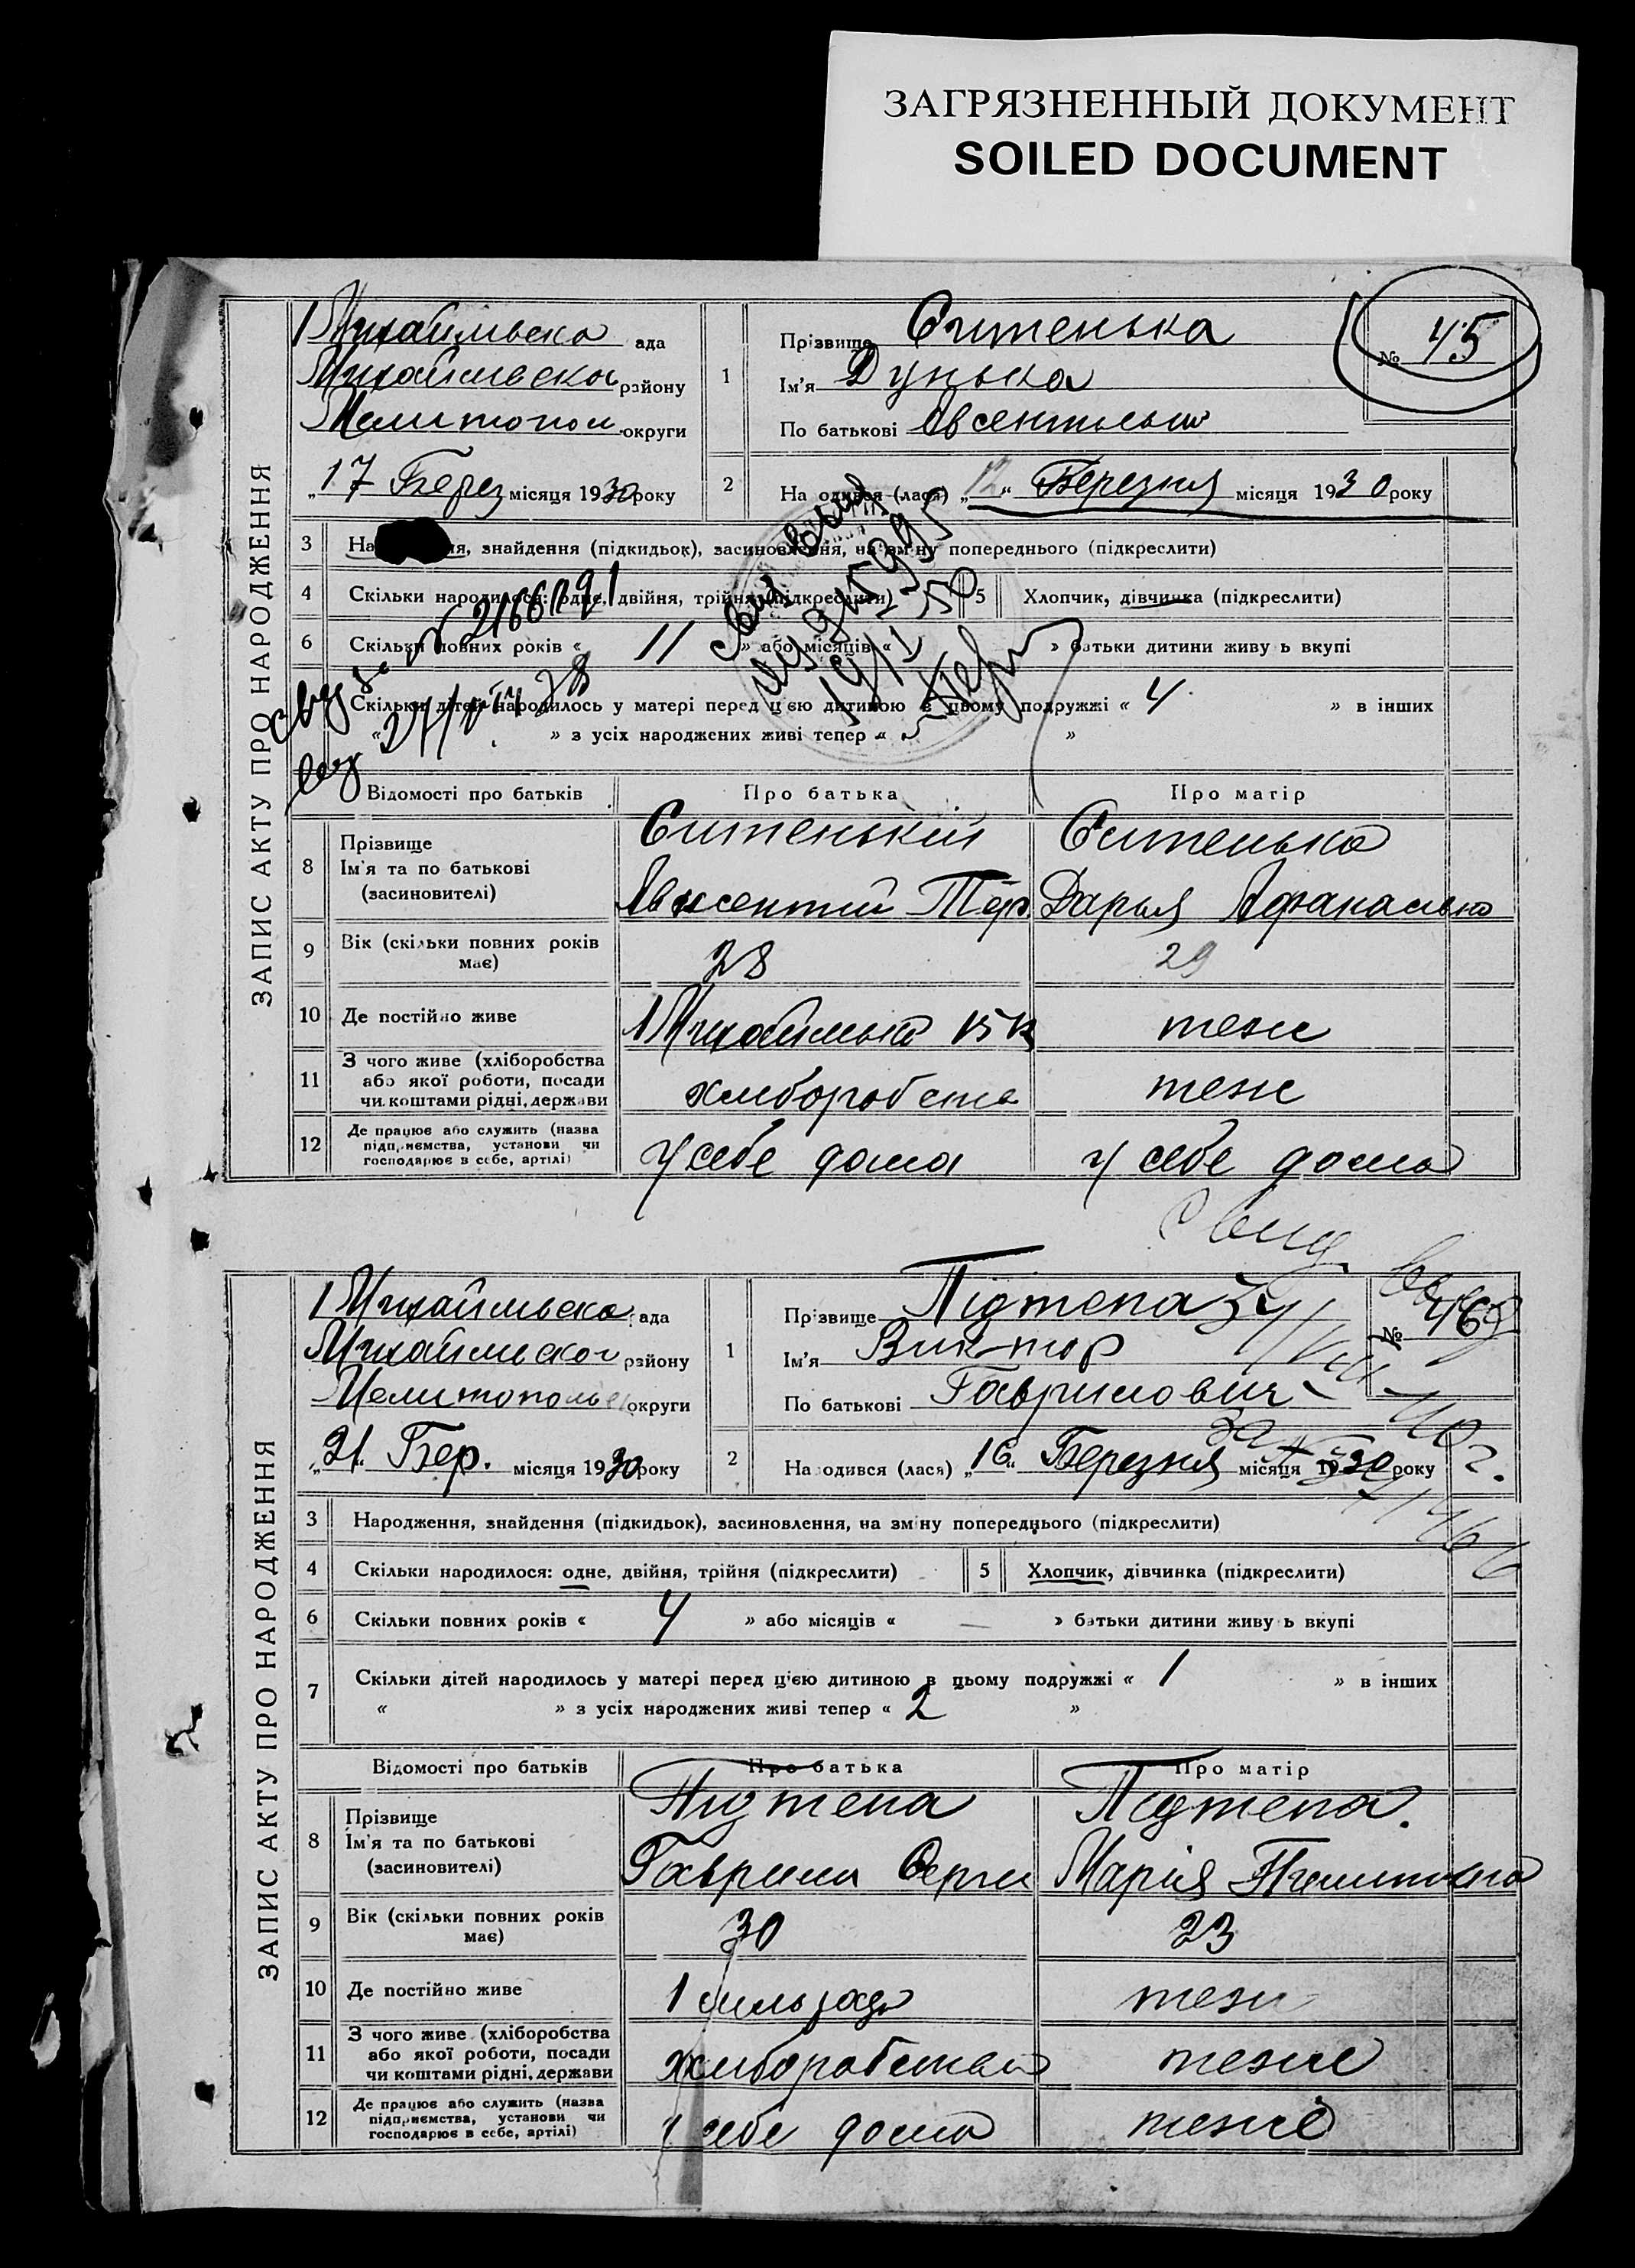 ЗАГРЯЗНЕННЫЙ ДОКУМЕНТ
SOILED DOCUMENT
ЗАПИС АКТУ ПРО НАРОДЖЕННЯ
1 Михайлівська ада
Михайлівськог району
Мелитопол округи
„17 Берез місяця 1930 року
1
Прізвище Ситенька
Ім'я Дунька
По батькові
№ 45
2
На одився (лася) „12“ Березня місяця 1930 року
3
знайдення (підкидьок), засиновлення, на зміну попереднього (підкреслити)
4 Скільки народилося: одне, двійня, трійня (підкреслити)
5 Хлопчик, дівчинка (підкреслити)
6 Скільки повних років « 11 » або місяців « » батьки дитини живу ь вкупі
Скільки дітей народилось у матері перед цією дитиною в цьому подружжі « 4 » в інших
« » з усіх народжених живі тепер « »
Відомості про батьків
Про батька
Про матір
8 Прізвище
Ім'я та по батькові
(засновителі)
Ситенький
Ситенька
Дарья
9 Вік (скільки повних років має)
28
29
10 Де постійно живе
теж
11 З чого живе (хліборобства
або якої роботи, посади
чи коштами рідні, держави
хліборобства
теж
12 Де працює або служить (назва
підприємства, установи чи
господарює в себе, артілі)
у себе дома
у себе дома
ЗАПИС АКТУ ПРО НАРОДЖЕННЯ
1 Михайлівська ада
Михайлівськог району
Мелитополь округи
„21“ Бер. місяця 1930 року
1
Прізвище Підтепа
Ім'я Виктор
По батькові Гаврилович
№ 46
2
На одився (лася) „16“ Березня місяця 1930 року
3 Народження, знайдення (підкидьок), засиновлення, на зміну попереднього (підкреслити)
4 Скільки народилося: одне, двійня, трійня (підкреслити)
5 Хлопчик, дівчинка (підкреслити)
6 Скільки повних років « 4 » або місяців « — » батьки дитини живу ь вкупі
7 Скільки дітей народилось у матері перед цією дитиною в цьому подружжі « 1 » в інших
« » з усіх народжених живі тепер « 2 »
Відомості про батьків
Про батька
Про матір
8 Прізвище
Ім'я та по батькові
(засновителі)
Підтепа
Гаврило Серги
Підтепа.
Марія
9 Вік (скільки повних років має)
30
23
10 Де постійно живе
1 сильрада
теж
11 З чого живе (хліборобства
або якої роботи, посади
чи коштами рідні, держави
теже
12 Де працює або служить (назва
підприємства, установи чи
господарює в себе, артілі)
у себе дома
теже